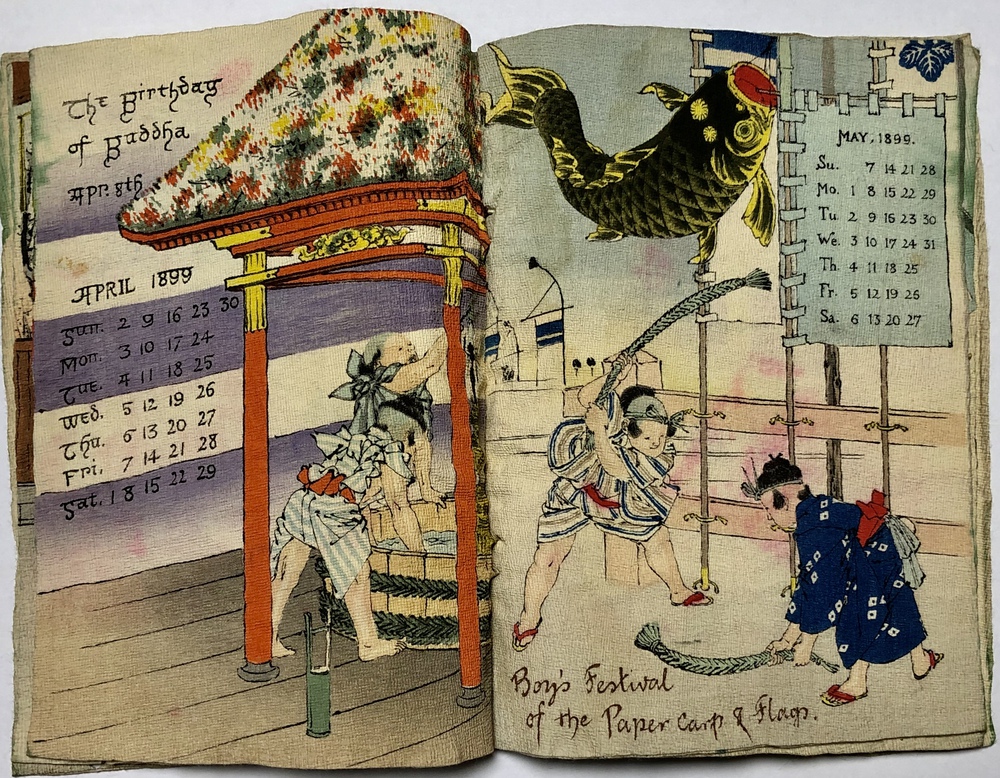 The Birthday
of Buddha
Apr. 8th
APRIL 1899
Sun. 2 9 16 23 30
Mon. 3 10 17 24
Tue. 4 11 18 25
Wed. 5 12 19 26
Thu. 6 13 20 27
Fri. 7 14 21 28
Sat. 1 8 15 22 29
MAY, 1899.
Su. 7 14 21 28
Mo. 1 8 15 22 29
Tu. 2 9 16 23 30
We. 3 10 17 24 31
Th. 4 11 18 25
Fr. 5 12 19 26
Sa. 6 13 20 27
Boy's Festival
of the Paper Carp & Flags.